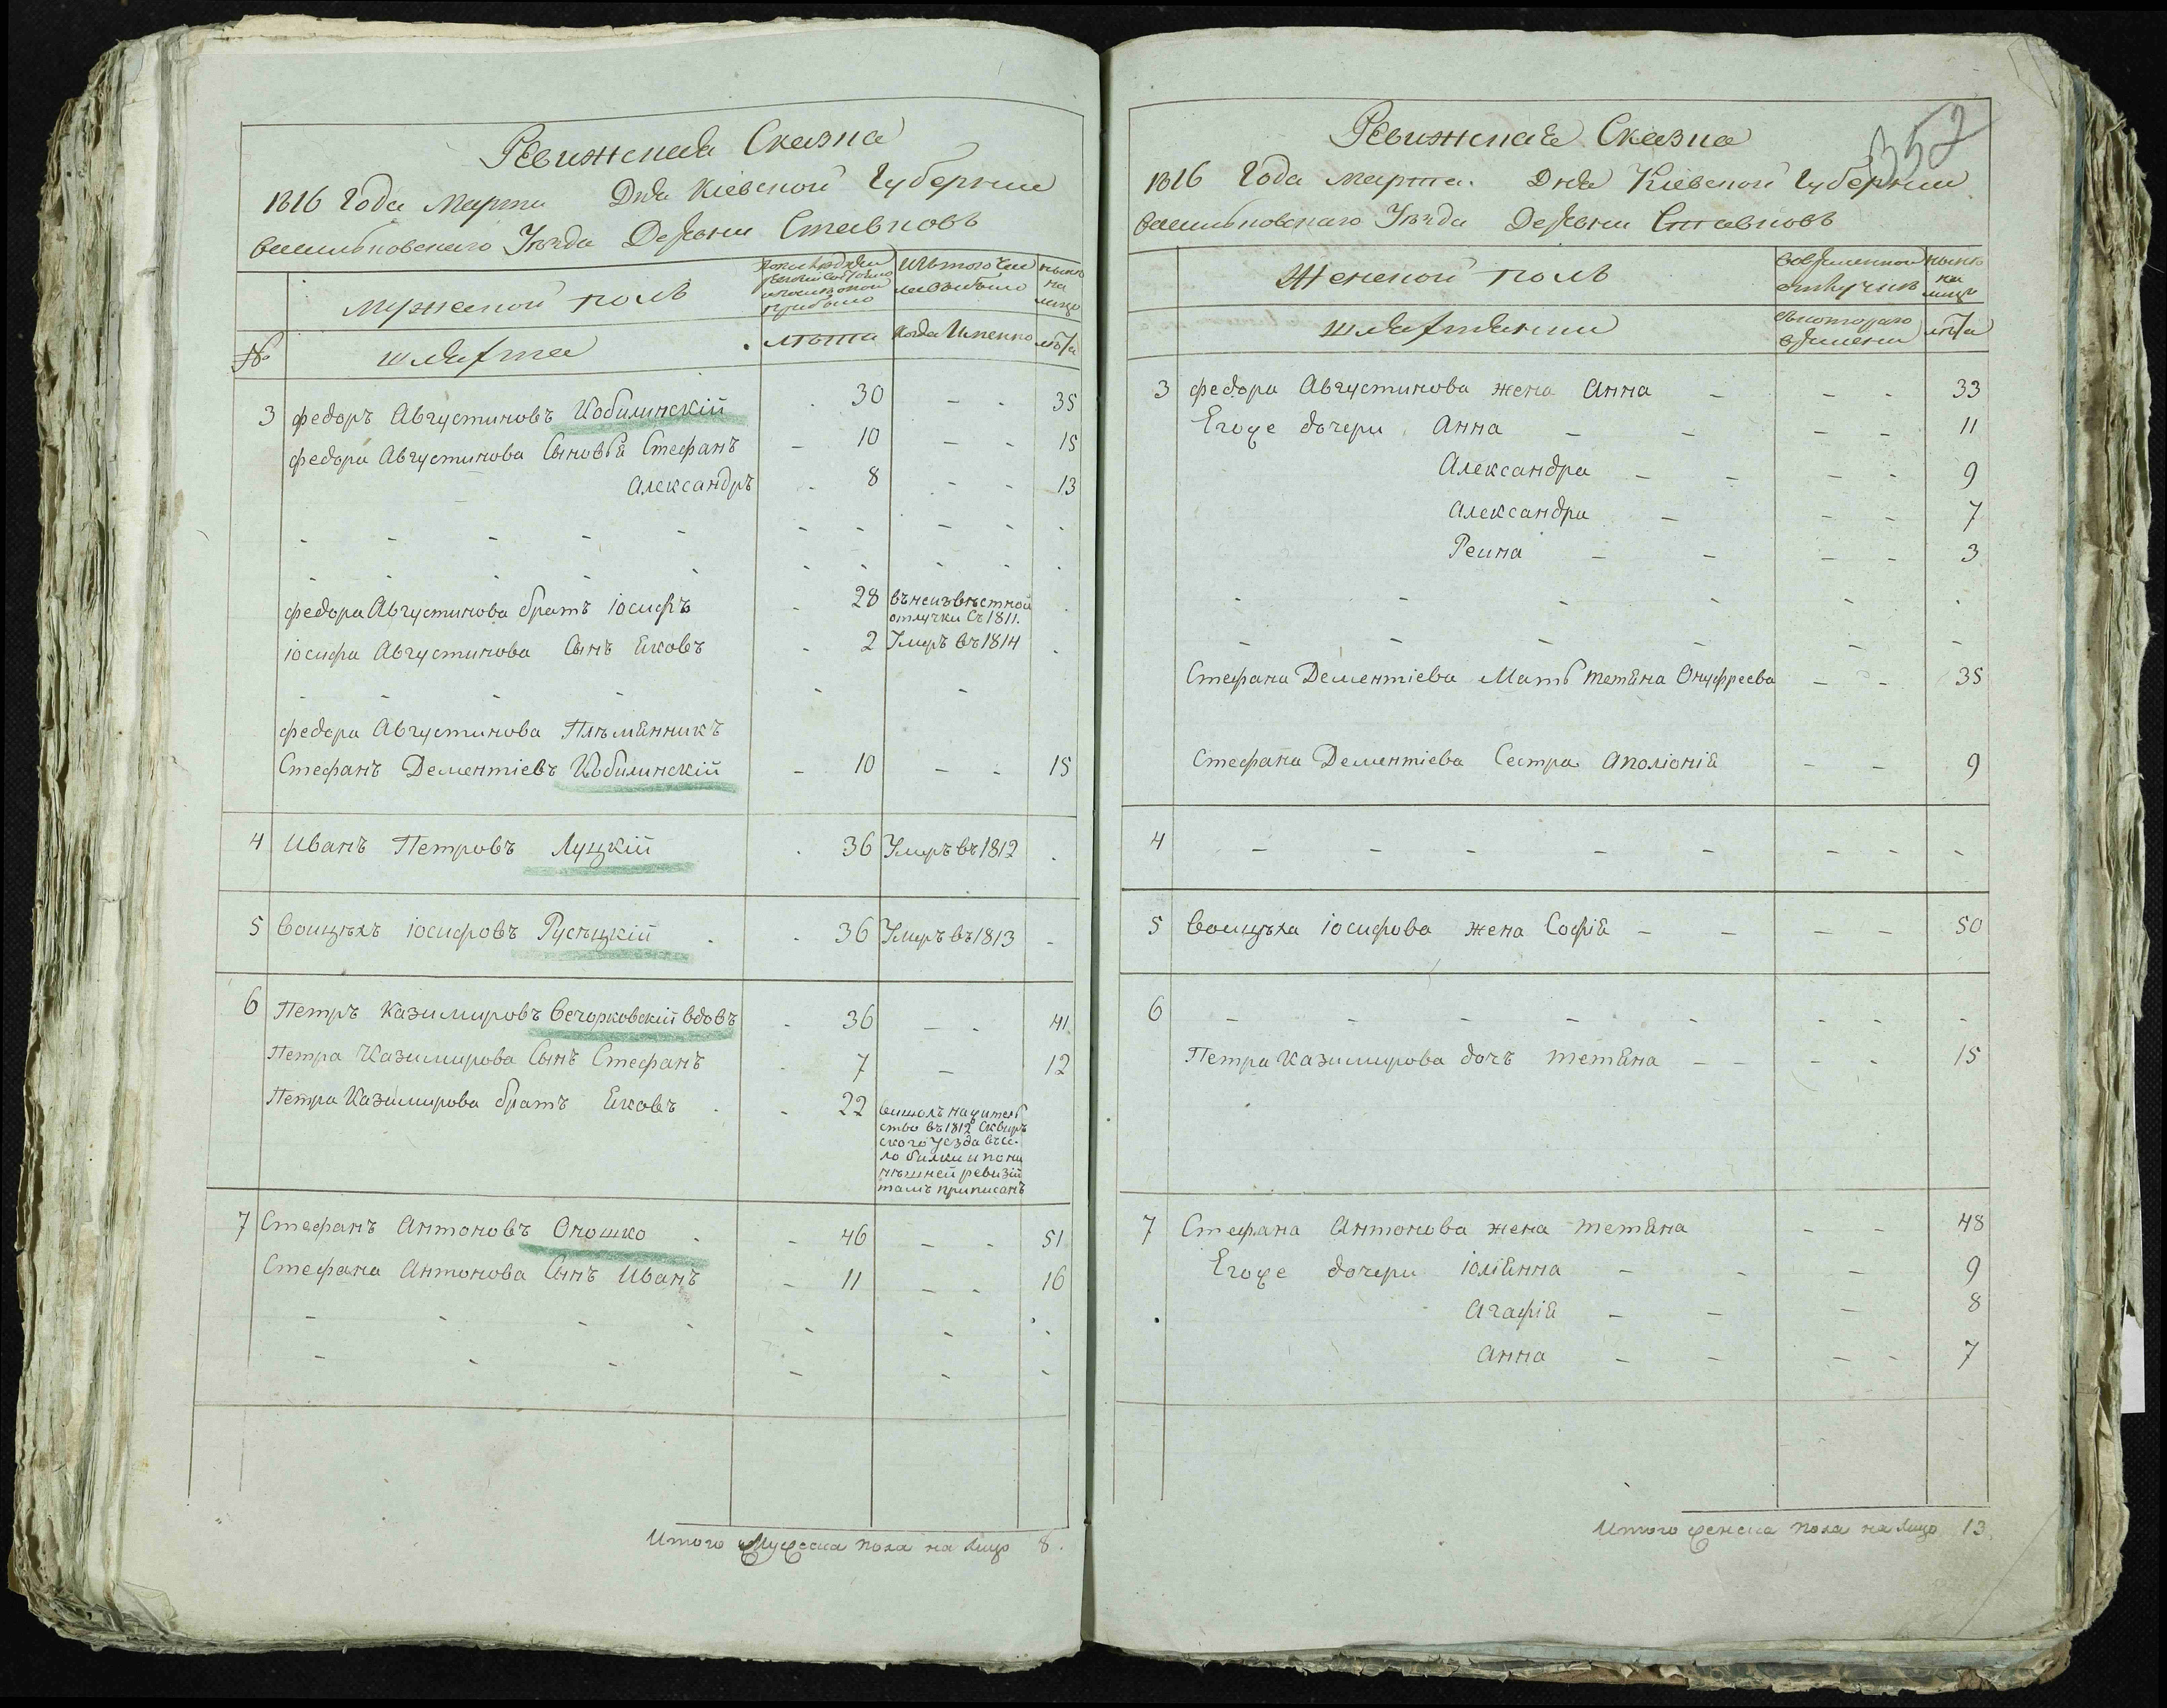 Ревижская Сказка
1816 Года Марта Дня Кіевской Губернии
Васильковскаго Уѣзда Деревни Ставковъ
Мужеской полъ
Изъ того числа выбыло
нынѣ на лицо
№
шляхта
лѣта
когда Именно
лѣта
3 федоръ Августиновъ Кобилинскій - 30 - - 35
федора Августинова Сыновья Стефанъ - 10 - - 15
Александръ - 8 - - 13
федора Августинова братъ іосифъ - 28 въ неизвѣстной
отлучки Съ 1811.
іосифа Августинова Сынъ Яковъ - 2 Умеръ въ 1814
федора Августинова Плѣмянникъ
Стефанъ Дементіевъ Кобилинскій - 10 - - 15
4 Иванъ Петровъ Луцкій - 36 Умеръ въ 1812 -
5 Воицѣхъ іосифовъ Русѣцкій - 36 Умеръ въ 1813 -
6 Петръ Казимировъ Вечорковскій вдовъ - 36 - - 41
Петра Казимирова Сынъ Стефанъ - 7 - 12
Петра Казимирова братъ Яковъ - 22 вишолъ на житель
ство въ 1812 Сквир
ского Уезда въ се-
ло билки и по ни
нѣшней ревизій
тамъ приписанъ
7 Стефанъ Антоновъ Оношко - 46 - - 51
Стефана Антонова Сынъ Иванъ - 11 - - 16
Итого Мужеска пола на лицо 8.
352
Ревижская Сказка
1816 Года Марта. Дня Кіевской Губернии
Васильковскаго Уѣзда Деревни Ставковъ
Женской полъ
во временной отлучкѣ
нынѣ на лицо
шляхтянки
съ котораго времени
лѣта
3 федора Августинова жена Анна - - - 33
Егоже дочери Анна - - - - 11
Александра - - - - 9
Александра - - - 7
Реина - - - - 3
Стефана Дементіева Мать тетяна Онуфреева - - 35
Стефана Дементіева Сестра Аполіонія - - 9
4 - - - - - - - -
5 Воицѣха іосифова жена Софія - - - - 50
6 - - - - - - - -
Петра Казимирова дочъ тетяна - - - - 15
7 Стефана Антонова жена тетяна - - 48
Егоже дочери юліянна - - - 9
Агафія - - - 8
Анна - - - - 7
Итого женска пола на лицо 13.